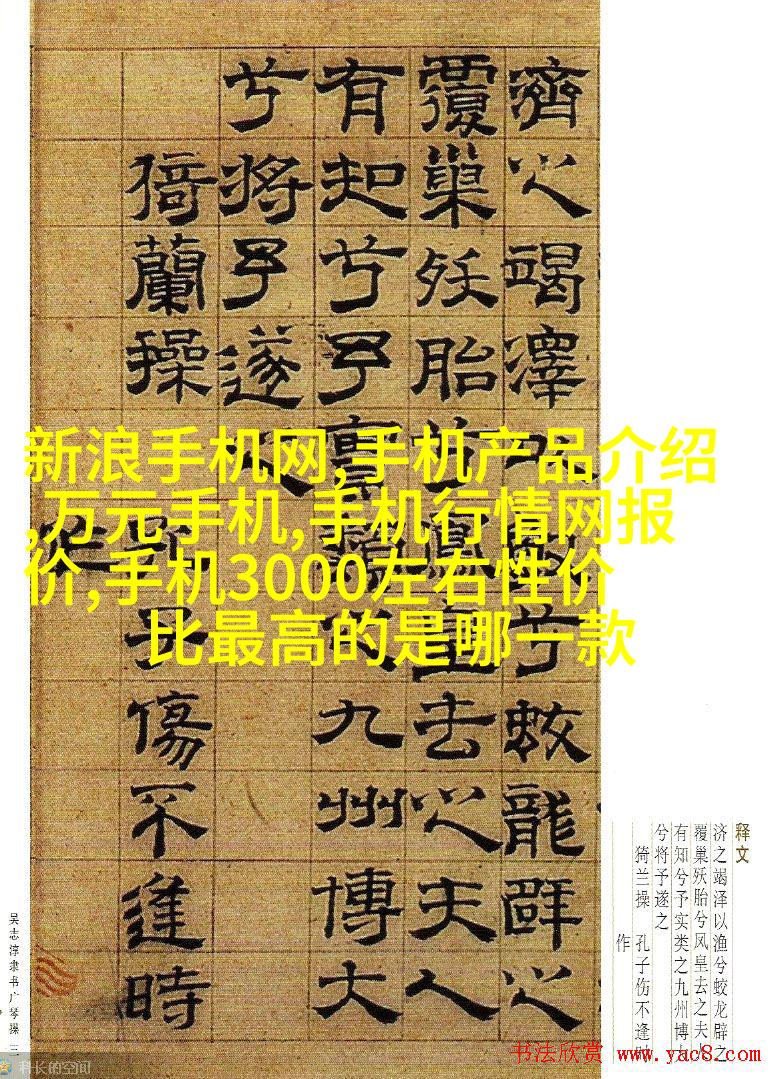 濟之竭澤以漁兮蛟龍辟之
覆巢殀胎兮鳳皇去之夫人
有知兮予實類之九州博大
兮將予遂之
猗蘭操 孔子傷不逢時
作
新浪手机网,手机产品介绍
,万元手机,手机行情网报
价,手机3000左右性价
比最高的是哪一款
释文
济之竭泽以渔兮蛟龙辟之
覆巢殀胎兮凤皇去之夫
有知兮予实类之九州博
兮将予遂之
猗兰操 孔子伤不逢
作
吴志淳隶书广琴操 三
科长的空间
书法欣赏 www.yac8.com